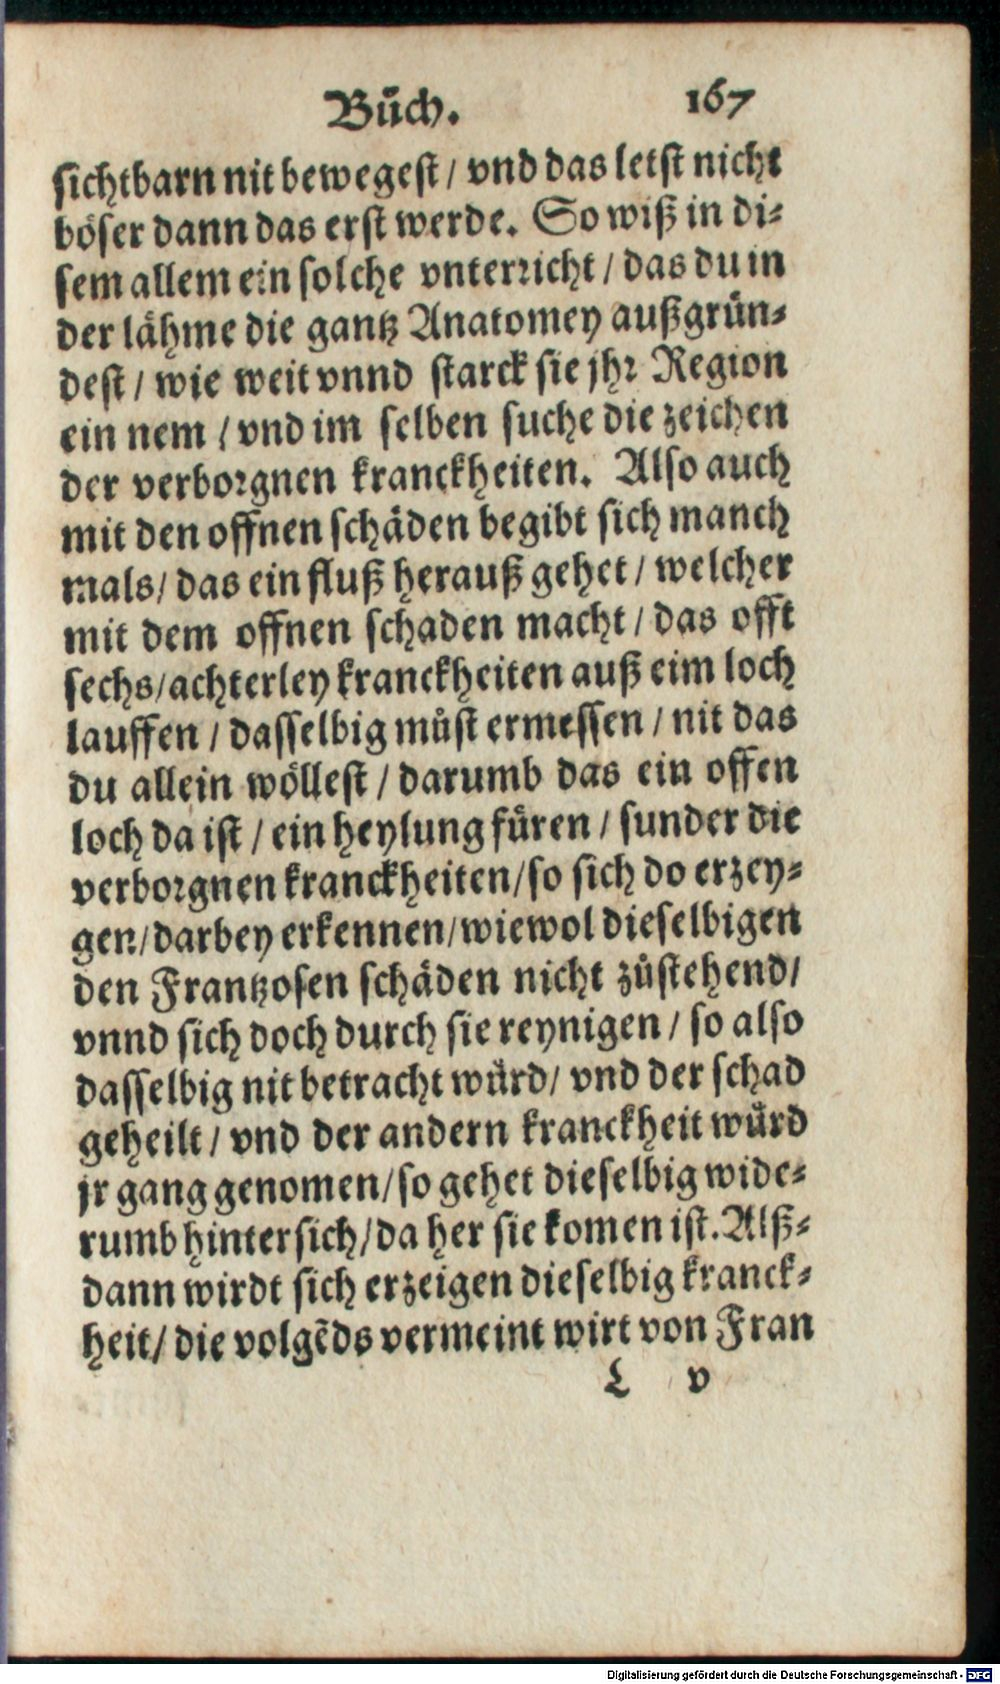 Bůch. 167
sichtbarn nit bewegest / vnd das letst nicht
böser dann das erst werde. So wiß in di⸗
sem allem ein solche vnterricht / das du in
der lähme die gantz Anatomey außgrün⸗
dest / wie weit vnnd starck sie jhr Region
ein nem / vnd im selben suche die zeichen
der verborgnen kranckheiten. Also auch
mit den offnen schäden begibt sich manch
mals / das ein fluß herauß gehet / welcher
mit dem offnen schaden macht / das offt
sechs / achterley kranckheiten auß eim loch
lauffen / dasselbig můst ermessen / nit das
du allein wöllest / darumb das ein offen
loch da ist / ein heylung füren / sunder die
verborgnen kranckheiten / so sich do erzey⸗
gen / darbey erkennen / wiewol dieselbigen
den Frantzosen schäden nicht zůstehend /
vnnd sich doch durch sie reynigen / so also
dasselbig nit betracht würd / vnd der schad
geheilt / vnd der andern kranckheit würd
jr gang genomen / so gehet dieselbig wide⸗
rumb hintersich / da her sie komen ist. Alß⸗
dann wirdt sich erzeigen dieselbig kranck⸗
heit / die volgēds vermeint wirt von Fran
L v
Digitalisierung gefördert durch die Deutsche Forschungsgemeinschaft - DFG